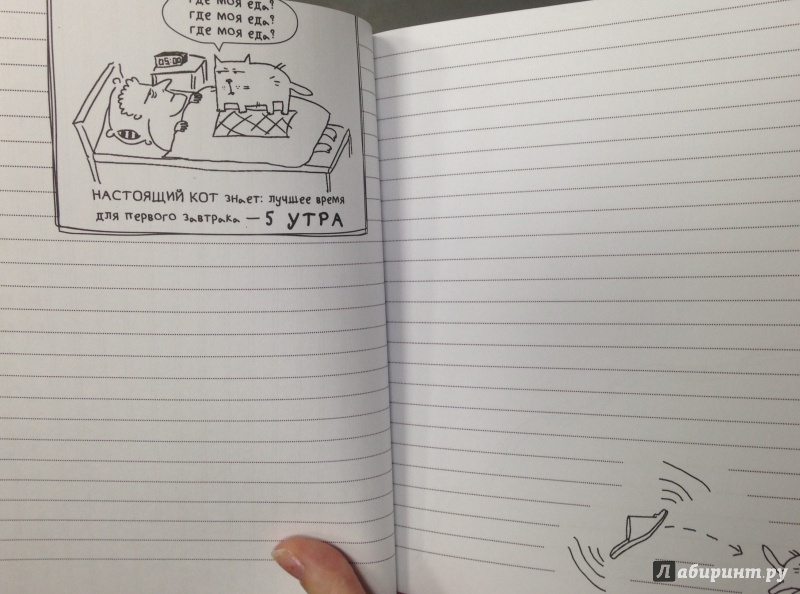 где моя еда?
где моя еда?
где моя еда?
05:00
НАСТОЯЩИЙ КОТ знает: лучшее время
для первого завтрака — 5 УТРА
Лабиринт.ру